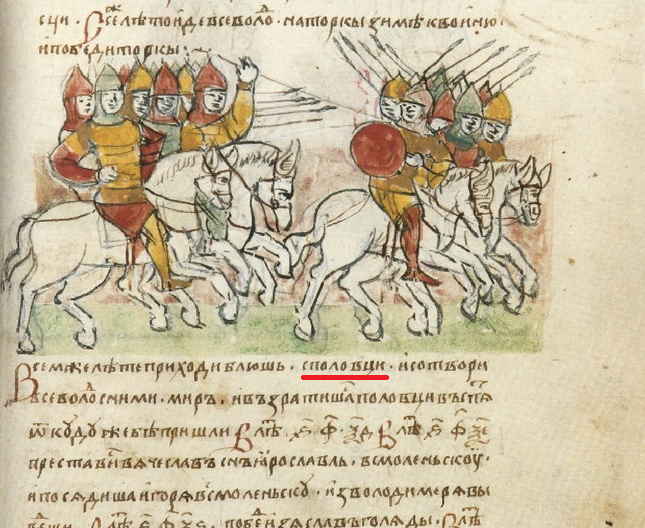 сци· Всеⷤ лѣⷮ поиде всеволоⷣ· наторкы зимѣ квоиню·
ипобѣди торкы:
Всемже лѣте приходи блюшь· споловци· исотвори
всеволоⷣ сними· миръ· ивъзратишаⷭ половци въспѧ
ѿкудуже бѣ пришли Влѣⷮ· ҂ѕ҃· ф҃· ѯ҃д҃ Влѣⷮ ҂ѕ҃ ф҃ ѯ҃е҃
преставиⷭ вѧчеславъ сн҃ъ ꙗрославль· всмоленьскоу·
ипосадиша игорѧ всмоленьску· изволодимерѧ вы
ведши· Влѣⷮ ҂ѕ҃ ф҃ ѯ҃ѕ҃· побѣди изѧславъ голѧды· Влѣⷮ